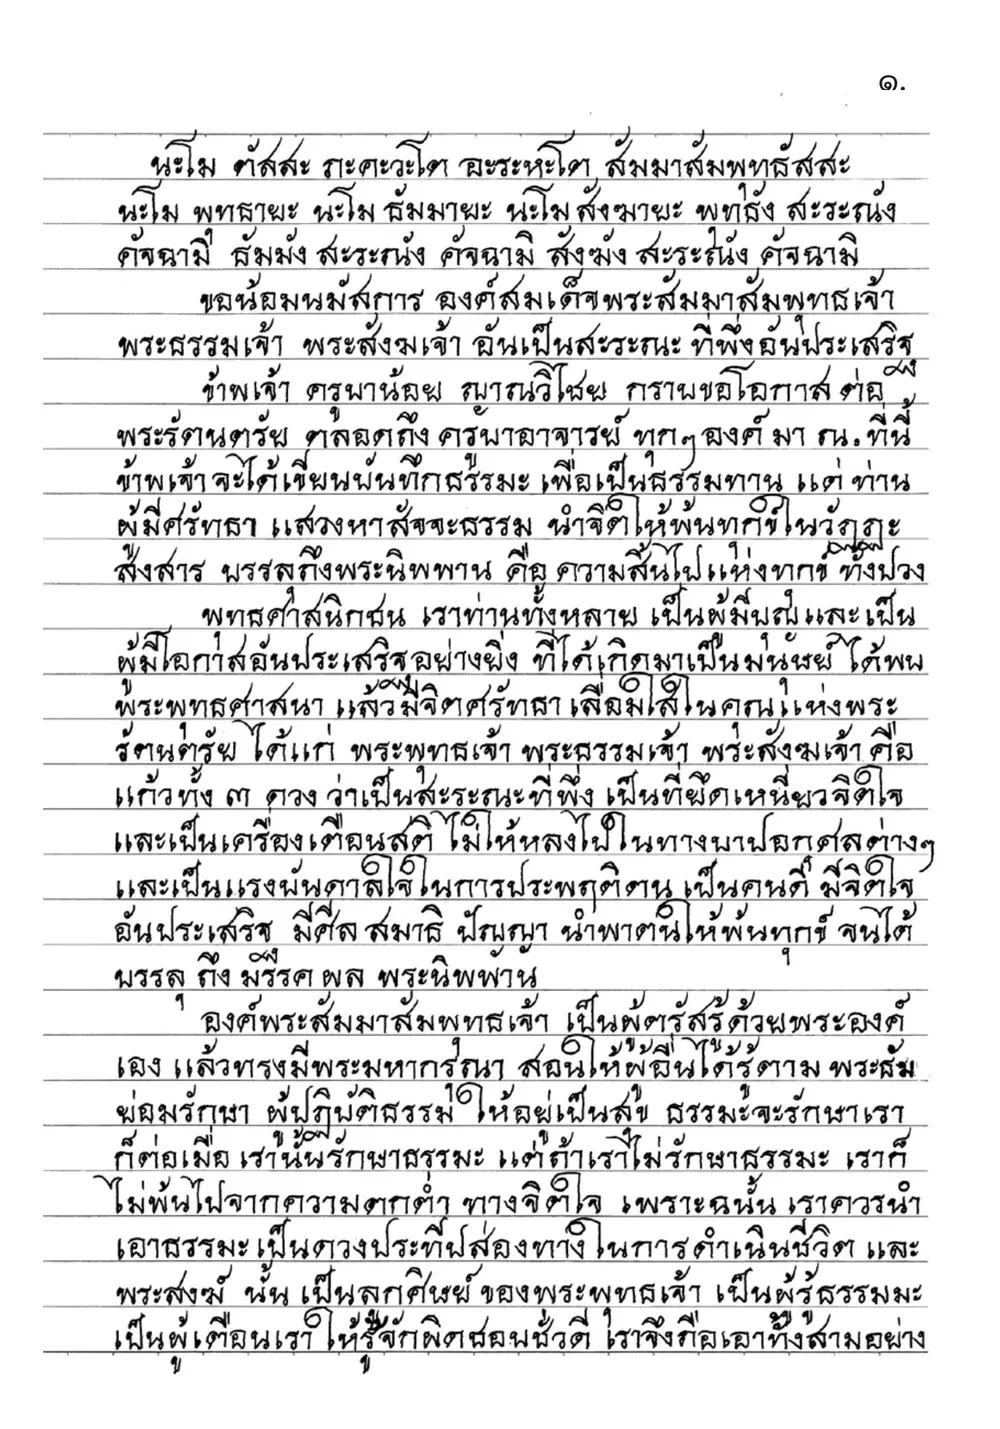 ๑.
นะโม ตัสสะ ภะคะวะโต อะระหะโต สัมมาสัมพุทธัสสะ
นะโม พุทธายะ นะโม ธัมมายะ นะโม สังฆายะ พุทธัง สะระณัง
คัจฉามิ ธัมมัง สะระณัง คัจฉามิ สังฆัง สะระณัง คัจฉามิ
ขอน้อมนมัสการ องค์สมเด็จพระสัมมาสัมพุทธเจ้า
พระธรรมเจ้า พระสังฆเจ้า อันเป็นสะระณะ ที่พึ่งอันประเสริฐ
ข้าพเจ้า ครูบาน้อย ญาณวิไชย กราบขอโอกาส ต่อ
พระรัตนตรัย ตลอดถึง ครูบาอาจารย์ ทุกๆ องค์ มา ณ. ที่นี้
ข้าพเจ้าจะได้เขียนบันทึกธรรมะ เพื่อเป็นธรรมทาน แด่ ท่าน
ผู้มีศรัทธา แสวงหาสัจจะธรรม นำจิตให้พ้นทุกข์ในวัฏฏะ
สังสาร บรรลุถึงพระนิพพาน คือ ความสิ้นไปแห่งทุกข์ ทั้งปวง
พุทธศาสนิกชน เราท่านทั้งหลาย เป็นผู้มีบุญและเป็น
ผู้มีโอกาสอันประเสริฐอย่างยิ่ง ที่ได้เกิดมาเป็นมนุษย์ ได้พบ
พระพุทธศาสนา แล้วมีจิตศรัทธา เลื่อมใสในคุณแห่งพระ
รัตนตรัย ได้แก่ พระพุทธเจ้า พระธรรมเจ้า พระสังฆเจ้า คือ
แก้วทั้ง ๓ ดวง ว่าเป็นสะระณะที่พึ่ง เป็นที่ยึดเหนี่ยวจิตใจ
และเป็นเครื่องเตือนสติ ไม่ให้หลงไปในทางบาปอกุศลต่างๆ
และเป็นแรงบันดาลใจในการประพฤติตน เป็นคนดี มีจิตใจ
อันประเสริฐ มีศีล สมาธิ ปัญญา นำพาตนให้พ้นทุกข์ จนได้
บรรลุ ถึง มรรค ผล พระนิพพาน
องค์พระสัมมาสัมพุทธเจ้า เป็นผู้ตรัสรู้ด้วยพระองค์
เอง แล้วทรงมีพระมหากรุณา สอนให้ผู้อื่นได้รู้ตาม พระธัม
ย่อมรักษา ผู้ปฏิบัติธรรม ให้อยู่เป็นสุข ธรรมะจะรักษาเรา
ก็ต่อเมื่อ เรานั้นรักษาธรรมะ แต่ถ้าเราไม่รักษาธรรมะ เราก็
ไม่พ้นไปจากความตกต่ำ ทางจิตใจ เพราะฉนั้น เราควรนำ
เอาธรรมะ เป็นดวงประทีปส่องทางในการดำเนินชีวิต และ
พระสงฆ์ นั้น เป็นลูกศิษย์ ของพระพุทธเจ้า เป็นผู้รู้ธรรมมะ
เป็นผู้เตือนเรา ให้รู้จักผิดชอบชั่วดี เราจึงถือเอาทั้งสามอย่าง